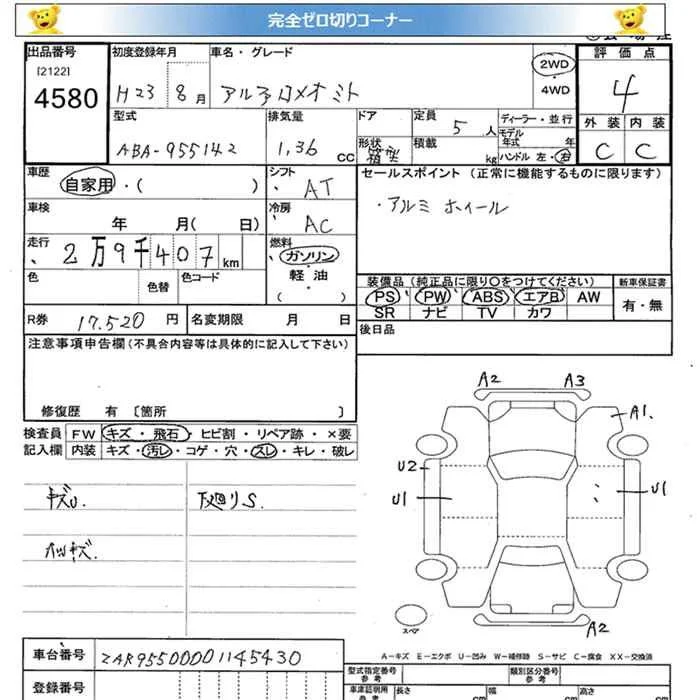 完全ゼロ切りコーナー
出品番号
[2122]
4580
初度登録年月
H23 8月
車名・グレード
アルファロメオ ミト
2WD
・
4WD
評価点
4
外装 内装
C C
型式
ABA-955142
排気量
1,36 CC
ドア
形状
定員
5 人
積載 kg
ディーラー・並行
モデル
年式 年
ハンドル 左・右
車歴
自家用・( )
シフト
AT
セールスポイント (正常に機能するものに限ります)
・アルミ ホィール
車検
年 月( 日)
冷房
AC
走行
2万9千407km
燃料
ガソリン
軽・油
( ・ )
色
色替
色コード
装備品 (純正品に限り○をつけてください)
PS PW ABS エアB AW
SR ナビ TV カワ
新車保証書
有・無
R券 17,520 円
名変期限 月 日
後日品
注意事項申告欄(不具合内容等は具体的に記入して下さい)
修復歴 有 〔箇所 〕
検査員
記入欄
FW キズ・飛石・ヒビ割・リペア跡・×要
内装 キズ・汚レ・コゲ・穴・スレ・キレ・破レ
キズU.
下廻りS.
A2 A3
A1.
U2
U1
U1
A2
スペア
A-キズ E-エクボ U-凹み W-補修跡 S-サビ C-腐食 XX-交換済
車台番号 ZAR95500001145430
登録番号
型式指定番号
参考
類別区分番号
参考
車庫証明用
参考
長さ cm
幅 cm
高さ cm